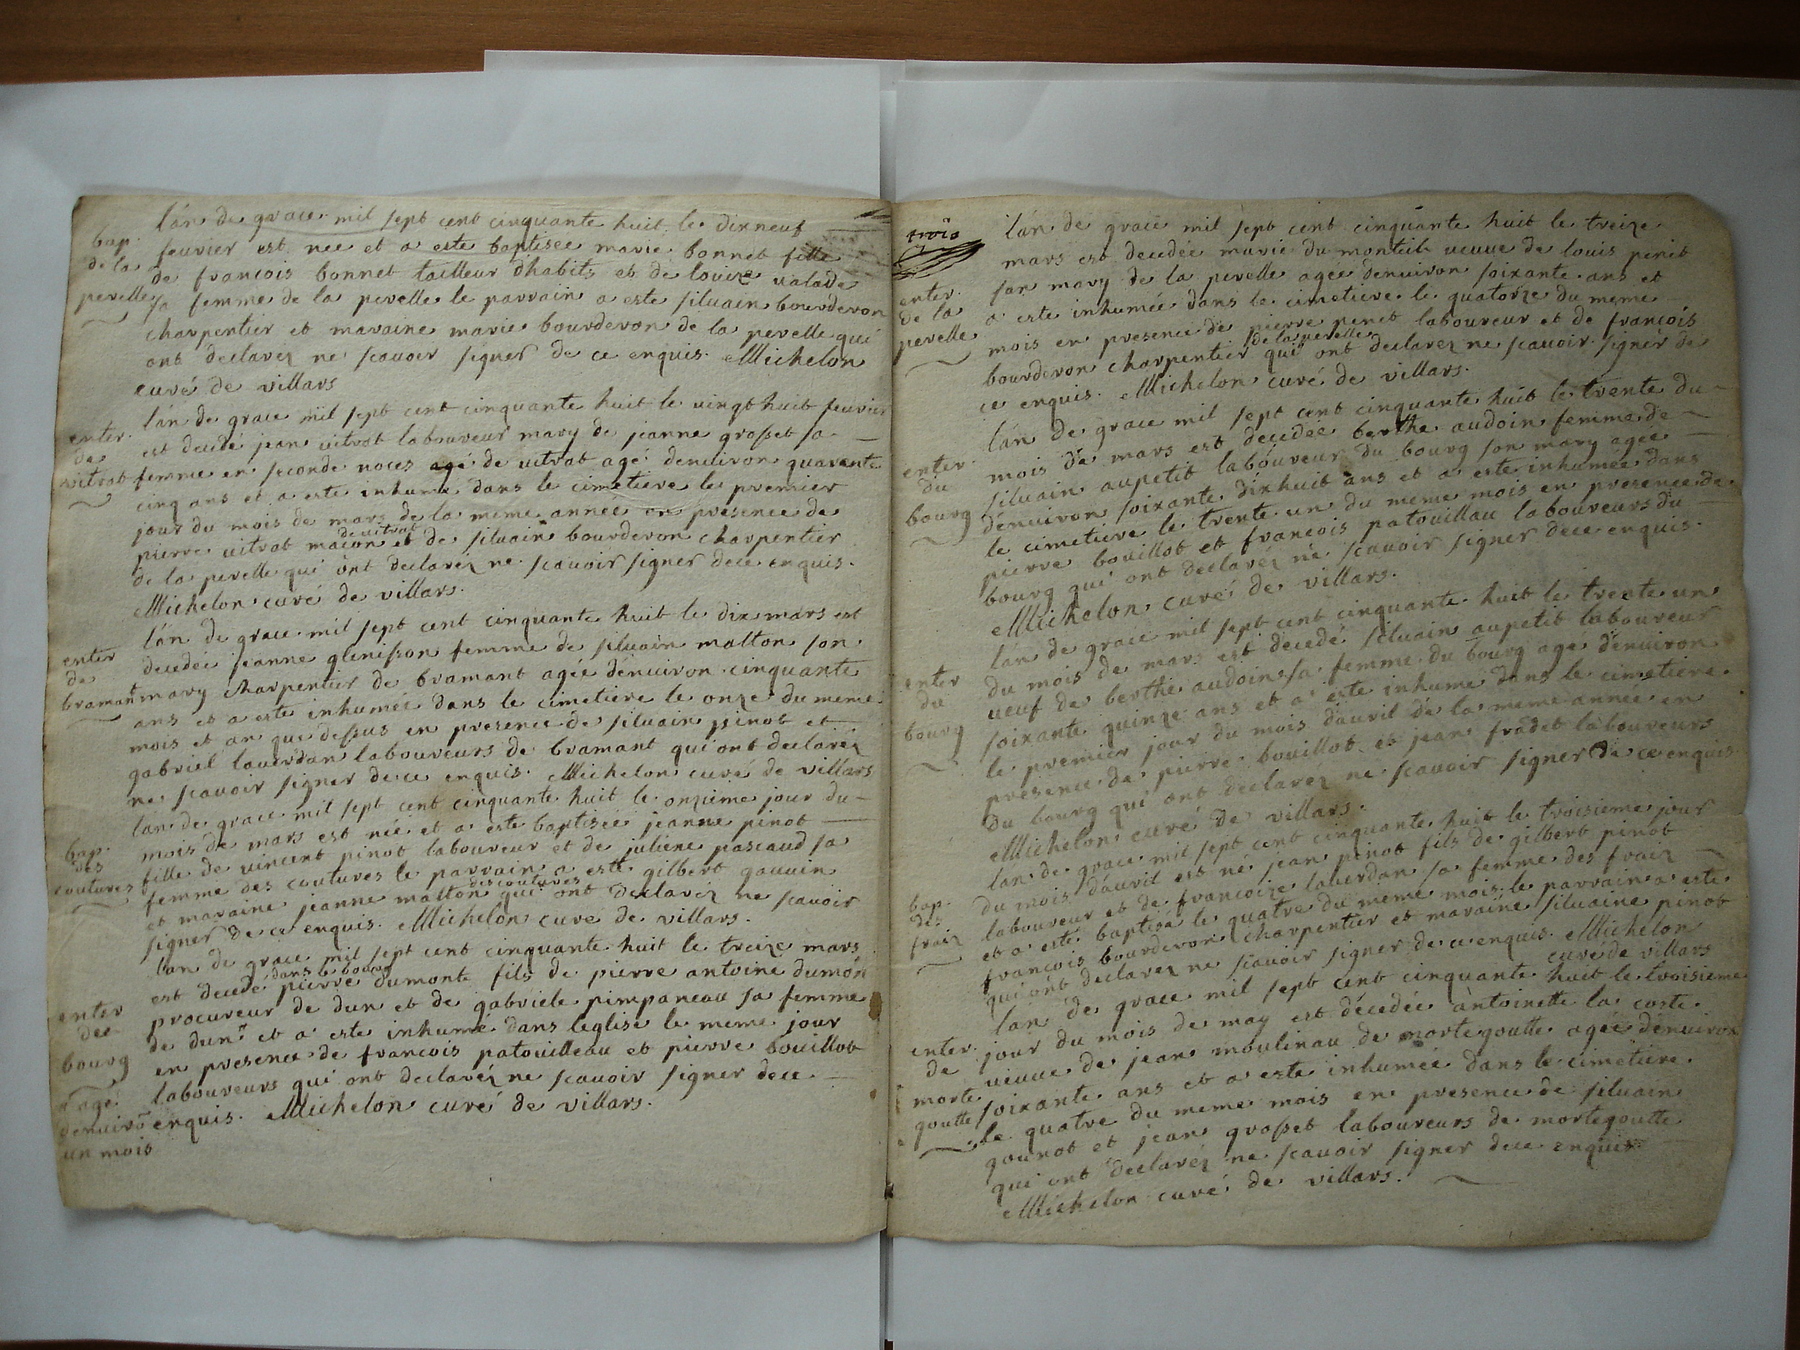 bap.
de la
perelle
l'an de grace mil sept cent cinquante huit le dixneuf
feurier est nee et a este baptisee marie bonnet fille
de francois bonnet tailleur d'habits et de louize valade
sa femme de la perelle le parrain a este siluain bourderon
charpentier et maraine marie bourderon de la perelle qui
ont declarez ne scauoir signer de ce enquis. Michelon
curé de villars
enter
de
vitrat
l'an de grace mil sept cent cinquante huit le uingt huit feurier
est decedé jean vitrat laboureur mary de jeanne grosset sa
femme en seconde noces agé de vitrat agé denuiron quarante
cinq ans et a este inhumé dans le cimetiere le premier
jour du mois de mars de la meme année en presence de
de vitrat
pierre vitrat maçon et de siluain bourderon charpentier
de la perelle qui ont declarez ne scauoir signer de ce enquis.
Michelon curé de villars.
enter
de
bramant
l'an de grace mil sept cent cinquante huit le dix mars est
decedée jeanne glenisson femme de siluain matton son
mary charpentier de bramant agée dénuiron cinquante
ans et a este inhumée dans le cimetiere le onze du meme
mois et an que dessus en presence de siluain pinot et
gabriel lauerdan laboureurs de bramant qui ont declarez
ne scauoir signer de ce enquis. Michelon curé de villars
bap.
des
coutures
l'an de grace mil sept cent cinquante huit le onzieme jour du
mois de mars est née et a este baptisée jeanne pinot
fille de vincent pinot laboureur et de juliene pascaud sa
femme des coutures le parrain a este gilbert gauuin
des coutures
et maraine jeanne matton qui ont declarez ne scauoir
signer de ce enquis. Michelon curé de villars.
enter
des
bourg
agé
denuirõ
un mois
l'an de grace mil sept cent cinquante huit le treize mars
dans le bourg
est decedé pierre dumonte fils de pierre antoine dumon
procureur de dun et de gabriele pimpaneau sa femme
de dun et a este inhumé dans leglise le meme jour
en presence de francois patouilleau et pierre bouillot
laboureurs qui ont declarez ne scauoir signer de ce
enquis. Michelon curé de villars.
trois
enter.
de la
perelle
l'an de grace mil sept cent cinquante huit le treize
mars est decedée marie du monteit ueuue de louis penit
san mary de la perelle agée denuiron soixante ans et
a este inhumée dans le cimetiere le quatorze du meme
mois en presence de pierre penit laboureur et de françois
de la perelle
bourderon charpentier qui ont declarez ne scauoir signer de
ce enquis. Michelon curé de villars.
enter
du
bourg
l'an de grace mil sept cent cinquante huit le trente du
mois de mars est decedée berthe audoin femme de
siluain aupetit laboureur du bourg son mary agée
dénuiron soixante dixhuit ans et a este inhumée dans
le cimetiere le trente un du meme mois en presence de
pierre bouillot et francois patouillau laboureurs du
bourg qui ont declarez ne scauoir signer de ce enquis.
Michelon curé de villars.
enter
du
bourg
l'an de grace mil sept cent cinquante huit le trente un
du mois de mars est decedé siluain aupetit laboureur
ueuf de berthe audoin sa femme du bourg agé dénuiron
soixante quinze ans et a este inhumé dans le cimetiere
le premier jour du mois dauril de la meme année en
presence de pierre bouillot et jean fradet laboureurs
du bourg qui ont declarez ne scauoir signer de ce enquis
Michelon curé de villars.
bap.
des
fraiz
l'an de grace mil sept cent cinquante huit le troisieme jour
du mois dauril est né jean pinot fils de gilbert pinot
laboureur et de francoize lauerdan sa femme des fraiz
et a este baptisé le quatre du meme mois le parrain a este
françois bourderon charpentier et maraine siluaine pinot
qui ont declarez ne scauoir signer de ce enquis. Michelon
curé de villars
enter
de
morte
goutte
l'an de grace mil sept cent cinquante huit le troisieme
jour du mois de may est décedée antoinette la coste
ueuue de jean moulinau de mortegoutte agée dénuiron
soixante ans et a este inhumée dans le cimetiere
le quatre du meme mois en presence de siluain
gounot et jean grosset laboureurs de mortegoutte
qui ont declarez ne scauoir signer de ce enquis
Michelon curé de villars.